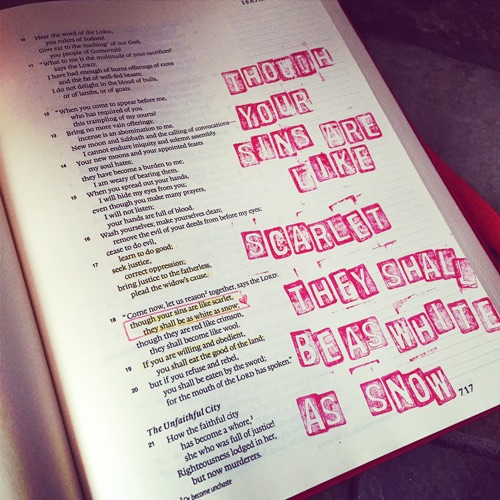 10 Hear the word of the LORD,
you rulers of Sodom!
Give ear to the teaching¹ of our God,
you people of Gomorrah!
11 "What to me is the multitude of your sacrifices?
says the LORD;
I have had enough of burnt offerings of rams
and the fat of well-fed beasts;
I do not delight in the blood of bulls,
or of lambs, or of goats.
12 "When you come to appear before me,
who has required of you
this trampling of my courts?
13 Bring no more vain offerings;
incense is an abomination to me.
New moon and Sabbath and the calling of convocations—
I cannot endure iniquity and solemn assembly.
14 Your new moons and your appointed feasts
my soul hates;
they have become a burden to me;
I am weary of bearing them.
15 When you spread out your hands,
I will hide my eyes from you;
even though you make many prayers,
I will not listen;
your hands are full of blood.
16 Wash yourselves; make yourselves clean;
remove the evil of your deeds from before my eyes;
cease to do evil,
17 learn to do good;
seek justice,
correct oppression;
bring justice to the fatherless,
plead the widow's cause.
18 "Come now, let us reason² together, says the LORD:
though your sins are like scarlet,
they shall be as white as snow;
though they are red like crimson,
they shall become like wool.
19 If you are willing and obedient,
you shall eat the good of the land;
20 but if you refuse and rebel,
you shall be eaten by the sword;
for the mouth of the LORD has spoken."
The Unfaithful City
21 How the faithful city
has become a whore,³
she who was full of justice!
Righteousness lodged in her,
but now murderers.
THOUGH
YOUR
SINS ARE
LIKE
SCARLET
THEY SHALL
BE AS WHITE
AS SNOW
717